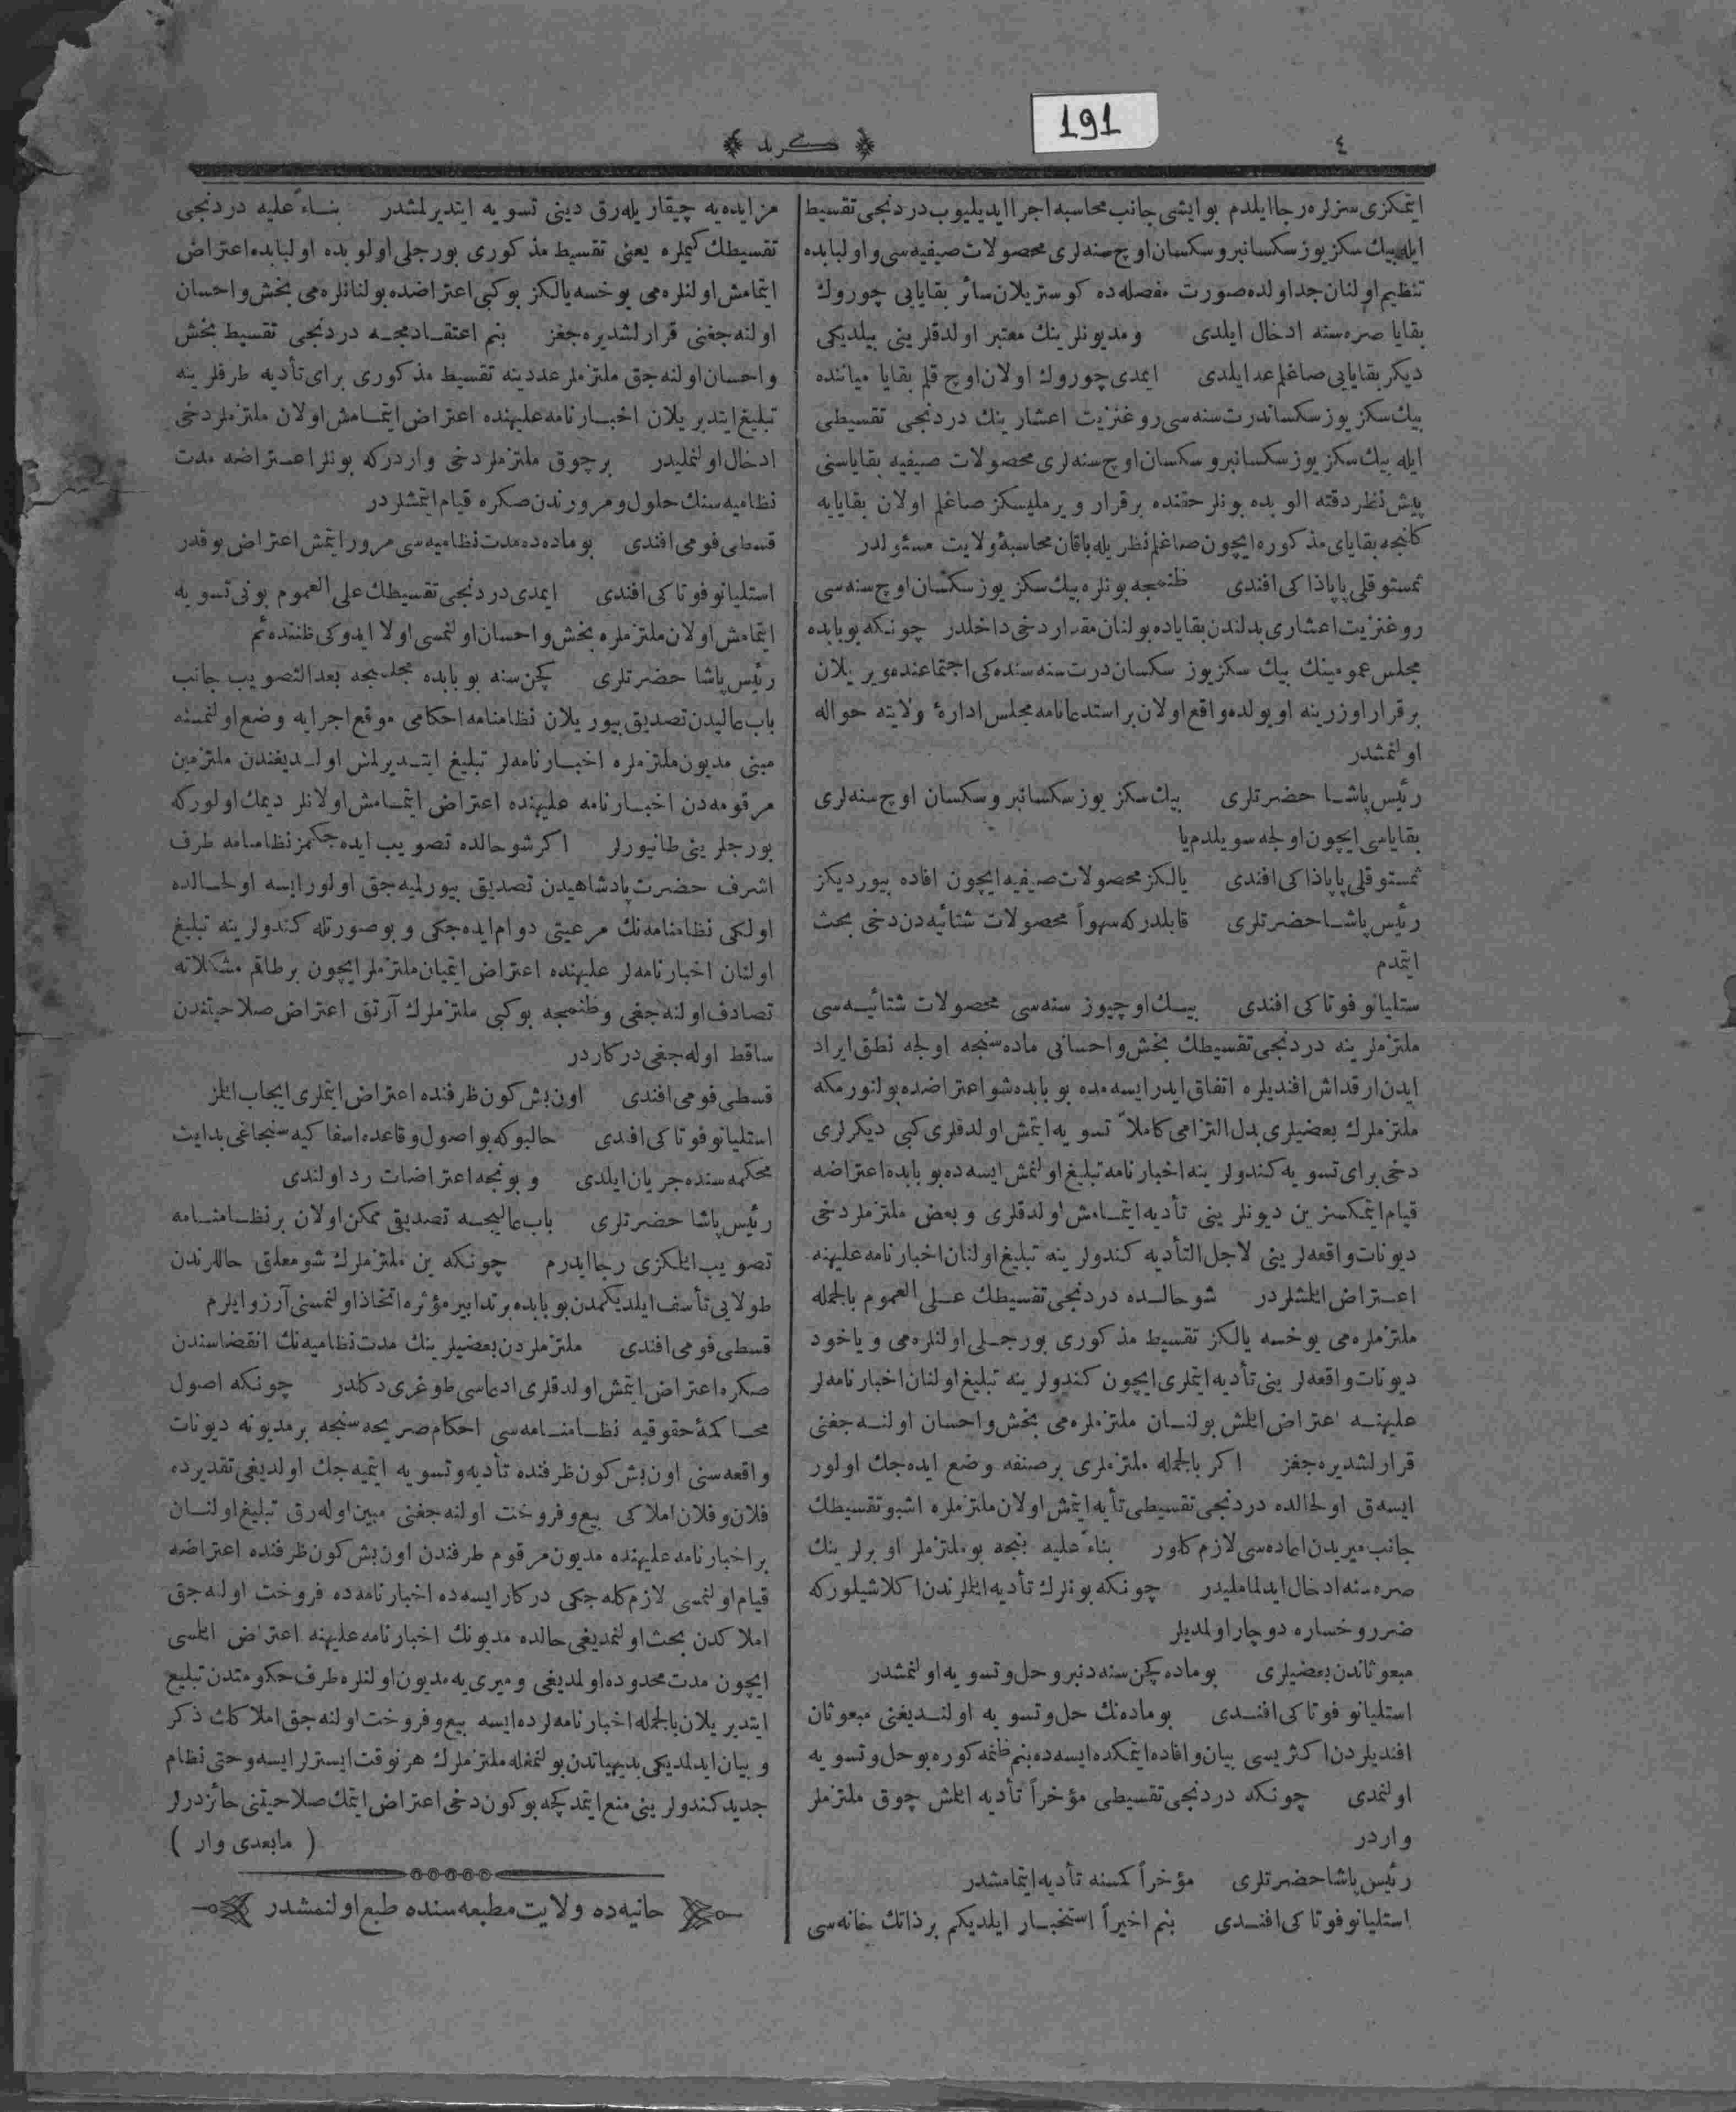 191
٤
كريد
ايتمكزى سزلره رجا ايلدم بو ايشى جانب محاسبه اجرا ايديليوب دردنجى تقسيط
ايله بيك سكز يوز سكسانبر و سكسان اوچ سنه لرى محصولات صيفيه سى و اولبابده
تنظيم اولنان جداولده صورت مفصله ده كوستريلان سائر بقايايى چوروك
بقايا صره سنه ادخال ايلدى ومديونلرينك معتبر اولدقلرينى بيلديكى
ديكر بقايايى صاغلم عد ايلدى ايمدى چوروك اولان اوچ قلم بقايا مياننده
بيك سكز يوز سكساندرت سنه سى روغنزيت اعشارينك دردنجى تقسيطى
ايله بيك سكز يوز سكسانبر و سكسان اوچ سنه لرى محصولات صيفيه بقاياسنى
پيش نظر دقته الوبده بونلر حقنده برقرار ويرمليسكز صاغلم اولان بقايايه
كلنجه بقاياى مذكوره ايچون صاغلم نظريله باقان محاسبۀ ولايت مسئولدر
ثمستوقلى پاپاذاكى افندى ظنمجه بونلره بيك سكز يوز سكسان اوچ سنه سى
روغنزيت اعشارى بدلندن بقاياده بولنان مقدار دخى داخلدر چونكه بو بابده
مجلس عمومينك بيك سكزيوز سكسان درت سنه سنده كى اجتماعنده ويريلان
برقرار اوزرينه او يولده واقع اولان بر استدعانامه مجلس ادارۀ ولايته حواله
اولنمشدر
رئيس پاشا حضرتلرى بيك سكز يوز سكسانبر و سكسان اوچ سنه لرى
بقاياسى ايچون اولجه سويلدم يا
ثمستوقلى پاپاذاكى افندى يالكز محصولات صيفيه ايچون افاده بيورديكز
رئيس پاشا حضرتلرى قابلدركه سهواً محصولات شتائيه دن دخى بحث
ايتمدم
ستليانو فوتاكى افندى بيك اوچيوز سنه سى محصولات شتائيه سى
ملتزملرينه دردنجى تقسيطك بخش و احسانى ماده سنجه اولجه نطق ايراد
ايدن ارقداش افنديلره اتفاق ايدر ايسه مده بو بابده شو اعتراضده بولنورمكه
ملتزملرك بعضيلرى بدل التزامى كاملاً تسويه ايتمش اولدقلرى كبى ديكرلرى
دخى براى تسويه كندولرينه اخبارنامه تبليغ اولنمش ايسه ده بو بابده اعتراضه
قيام ايتمكسزين ديونلرينى تأديه ايتمامش اولدقلرى و بعض ملتزملر دخى
ديونات واقعه لرينى لاجل التأديه كندولرينه تبليغ اولنان اخبارنامه عليهنه
اعتراض ايلمشلردر شو حالده دردنجى تقسيطك على العموم بالجمله
ملتزملره مى يوخسه يالكز تقسيط مذكورى بورجلى اولنلره مى وياخود
ديونات واقعه لرينى تأديه ايتملرى ايچون كندولرينه تبليغ اولنان اخبارنامه لر
عليهنه اعتراض ايلمش بولنان ملتزملره مى بخش و احسان اولنه جغنى
قرارلشديره جغز اكر بالجمله ملتزملرى برصنفه وضع ايده جك اولور
ايسه ق اولحالده دردنجى تقسيطى تأيه ايتمش اولان ملتزملره اشبو تقسيطك
جانب ميريدن اعاده سى لازم كلور بناءً عليه بنجه بو ملتزملر او برلرينك
صره سنه ادخال ايدلماملیدر چونكه بونلرك تأديه ايتلرندن اكلاشيلوركه
ضرر و خساره دوچار اولمديلر
مبعوثاندن بعضيلرى بو ماده كچن سنه دنبرو حل و تسويه اولنمشدر
استليانو فوتاكى افندى بو ماده نك حل و تسويه اولنديغنى مبعوثان
افنديلردن اكثريسى بيان و افاده ايتمكده ايسه ده بنم ظنمه كوره بو حل و تسويه
اولنمدى چونكه دردنجى تقسيطى مؤخراً تأديه ايلمش چوق ملتزملر
واردر
رئيس پاشا حضرتلرى مؤخراً كمسنه تأديه ايتمامشدر
استليانو فوتاكى افندى بنم اخيراً استخبار ايلديكم برذاتك خانه سى
مزايده يه چيقاريله رق دينى تسويه ايتديرلمشدر بناءً عليه دردنجى
تقسيطك كيملره يعنى تقسيط مذكورى بورجلى اولوبده اولبابده اعتراض
ايتمامش اولنلره مى يوخسه يالكز بوكبى اعتراضده بولنانلره مى بخش و احسان
اولنه جغنى قرارلشديره جغز بنم اعتقادمجه دردنجى تقسيط بخش
و احسان اولنه جق ملتزملر عددينه تقسيط مذكورى براى تأديه طرفلرينه
تبليغ ايتديريلان اخبارنامه عليهنده اعتراض ايتمامش اولان ملتزملر دخى
ادخال اولنمليدر برچوق ملتزملر دخى واردركه بونلر اعتراضه مدت
نظاميه سنك حلول و مرورندن صكره قيام ايتمشلردر
قسطى فومى افندى بو ماده ده مدت نظاميه سى مرور ايتمش اعتراض يوقدر
استليانو فوتاكى افندى ايمدى دردنجى تقسيطك على العموم بونى تسويه
ايتمامش اولان ملتزملره بخش و احسان اولنمسى اولا ايدوكى ظننده ئم
رئيس پاشا حضرتلرى كچن سنه بو بابده مجلسجه بعد التصويب جانب
باب عاليدن تصديق بيوريلان نظامنامه احكامى موقع اجرايه وضع اولنمسنه
مبنى مديون ملتزملره اخبارنامه لر تبليغ ايتديرلمش اولديغندن ملتزمين
مرقومه دن اخبارنامه عليهنده اعتراض ايتمامش اولانلر ديمك اولوركه
بورجلرينى طانيورلر اكر شو حالده تصويب ايده جكمز نظامنامه طرف
اشرف حضرت پادشاهيدن تصديق بيورلميه جق اولور ايسه اولحالده
اولكى نظامنامه نك مرعيتى دوام ايده جكى و بو صورتله كندولرينه تبليغ
اولنان اخبارنامه لر عليهنده اعتراض ايتميان ملتزملر ايچون برطاقم مشكلاته
تصادف اولنه جغى و ظنمجه بوكبى ملتزملرك آرتق اعتراض صلاحيتندن
ساقط اوله جغى دركاردر
قسطى فومى افندى اون بش كون ظرفنده اعتراض ايتملرى ايجاب ايلمز
استليانو فوتاكى افندى حالبوكه بو اصول و قاعده اسفاكيه سنجاغى بدايت
محكمه سنده جريان ايلدى و بونجه اعتراضات رد اولندى
رئيس پاشا حضرتلرى باب عاليجه تصديقى ممكن اولان برنظامنامه
تصويب ايلمكزى رجا ايدرم چونكه بن ملتزملرك شو معلق حاللرندن
طولايى تأسف ايلديكمدن بو بابده برتدابير مؤثره اتخاذ اولنمسنى آرزو ايلرم
قسطى فومى افندى ملتزملردن بعضيلرينك مدت نظاميه نك انقضاسندن
صكره اعتراض ايتمش اولدقلرى ادعاسى طوغرى دكلدر چونكه اصول
محاكمۀ حقوقيه نظامنامه سى احكام صريحه سنجه برمديونه ديونات
واقعه سنى اون بش كون ظرفنده تأديه و تسويه ايتميه جك اولديغى تقديرده
فلان و فلان املاكى بيع و فروخت اولنه جغنى مبين اوله رق تبليغ اولنان
براخبارنامه عليهنده مديون مرقوم طرفندن اون بش كون ظرفنده اعتراضه
قيام اولنمسى لازم كله جكى دركار ايسه ده اخبارنامه ده فروخت اولنه جق
املاكدن بحث اولنمديغى حالده مديونك اخبارنامه عليهنه اعتراض ايلمسى
ايچون مدت محدوده اولمديغى و ميرى يه مديون اولنلره طرف حكومتدن تبليغ
ايتديريلان بالجمله اخبارنامه لرده ايسه بيع و فروخت اولنه جق املاكك ذكر
و بيان ايدلمديكى بديهياتدن بولنمغله ملتزملرك هر نوقت ايسترلر ايسه و حتى نظام
جديد كندولرينى منع ايتمدكجه بوكون دخى اعتراض ايتمك صلاحيتنى حائزدرلر
( مابعدى وار )
حانيه ده ولايت مطبعه سنده طبع اولنمشدر